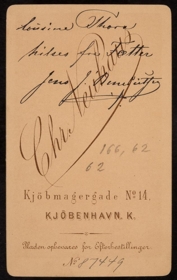 Cousine Thora
hilses fra Fætter
Jens
Chr. Neuhaus
166, 62
62
Kjöbmagergade No 14.
KJÖBENHAVN. K.
Pladen opbevares for Efterbestillinger.
No 87449